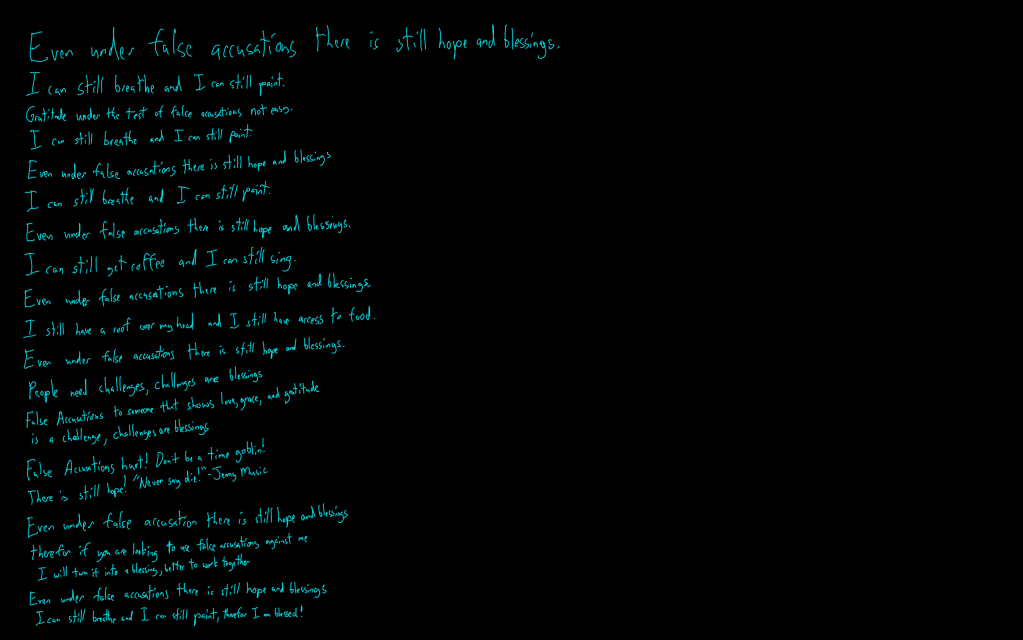 Even under false accusations there is still hope and blessings.
I can still breathe and I can still paint.
Gratitude under the test of false accusations not easy.
I can still breathe and I can still paint.
Even under false accusations there is still hope and blessings
I can still breathe and I can still paint.
Even under false accusations there is still hope and blessings.
I can still get coffee and I can still sing.
Even under false accusations there is still hope and blessings.
I still have a roof over my head and I still have access to food.
Even under false accusations there is still hope and blessings.
People need challenges, challenges are blessings
False Accusations to someone that shows love, grace, and gratitude
is a challenge, challenges are blessings
False Accusations hurt! Don't be a time goblin!
There is still hope! "Never say die!" - Jenny Music
Even under false accusation there is still hope and blessings
therefor if you are looking to use false accusations against me
I will turn it into a blessing, better to work together
Even under false accusations there is still hope and blessings
I can still breathe and I can still paint, therefor I am blessed!